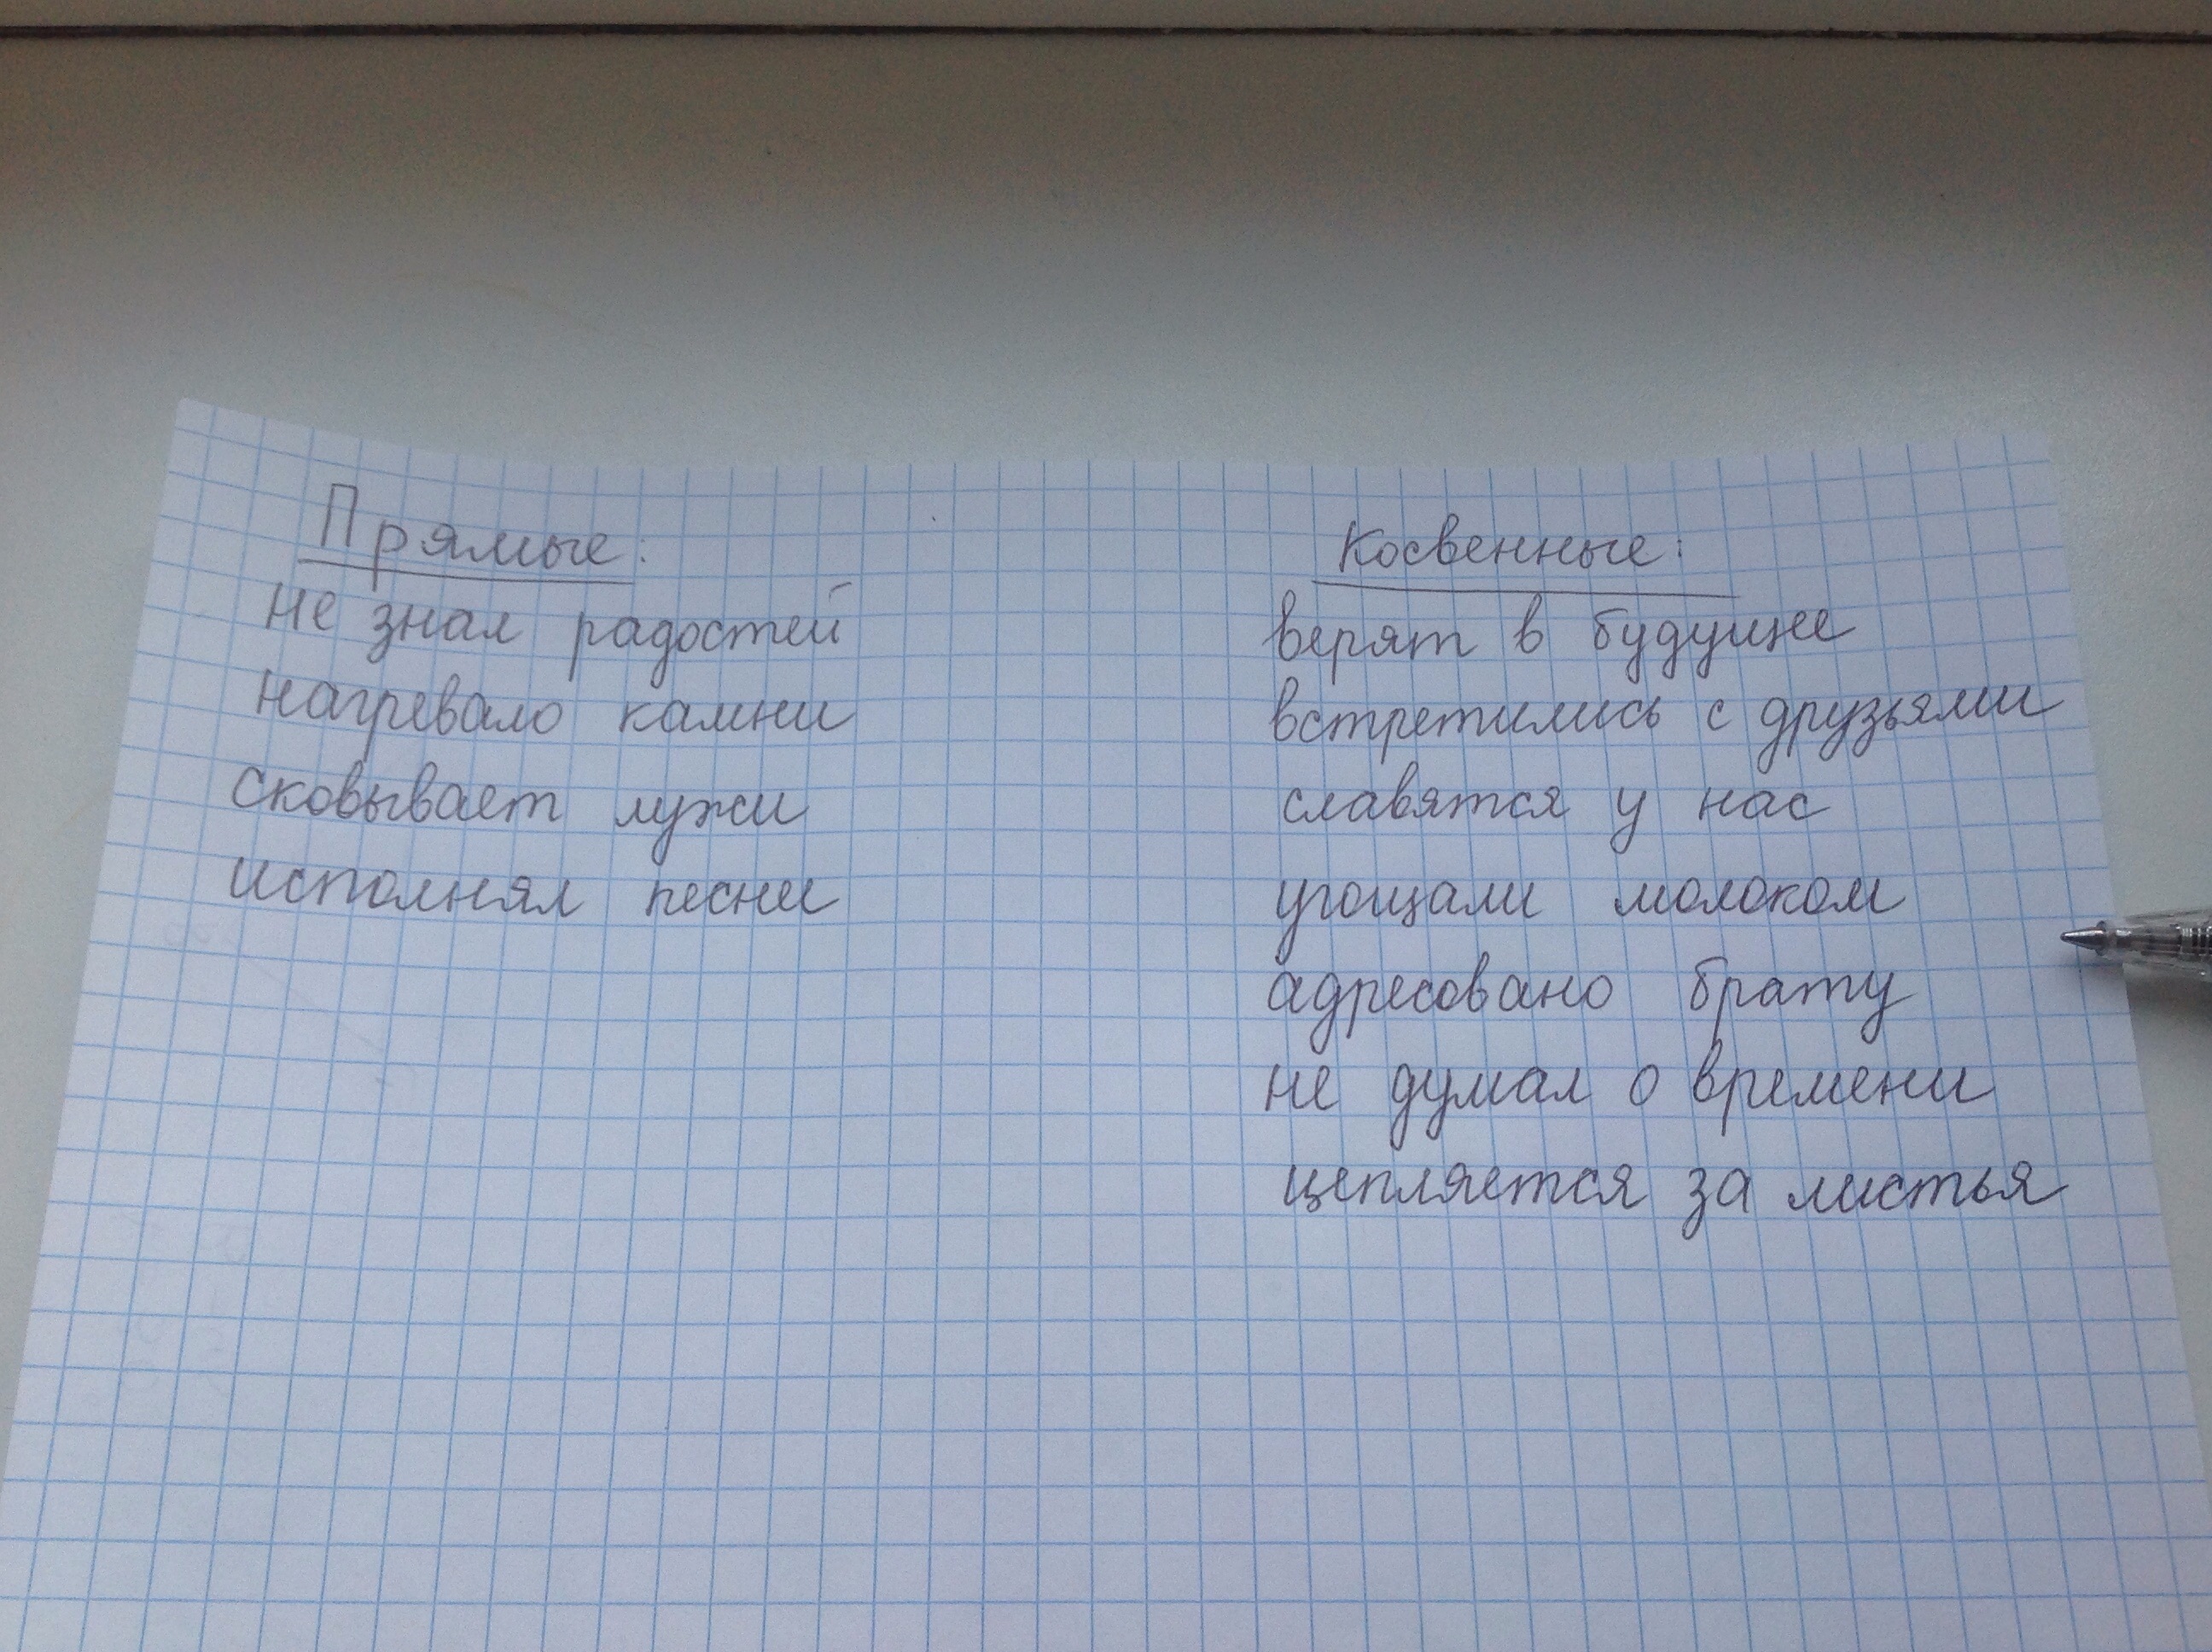 Прямые:
не знал радостей
нагревало камни
сковывает лужи
исполнял песни
Косвенные:
верят в будущее
встретились с друзьями
славятся у нас
угощали молоком
адресовано брату
не думал о времени
цепляется за листья